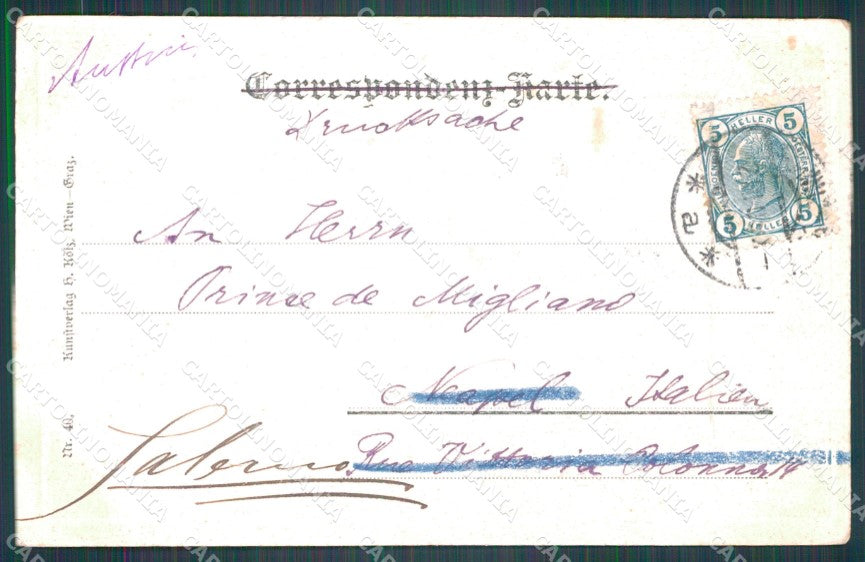 Austria
Correspondenz-Karte.
Drucksache
An Herrn
Prince de Migliano
Neapel Italien
Rue Vittoria Colonna 14
Salerno
Nr. 40. Kunstverlag H. Kölz, Wien–Graz.
5 HELLER 5
5 HELLER 5
* a *
CARTOLINOMANIA